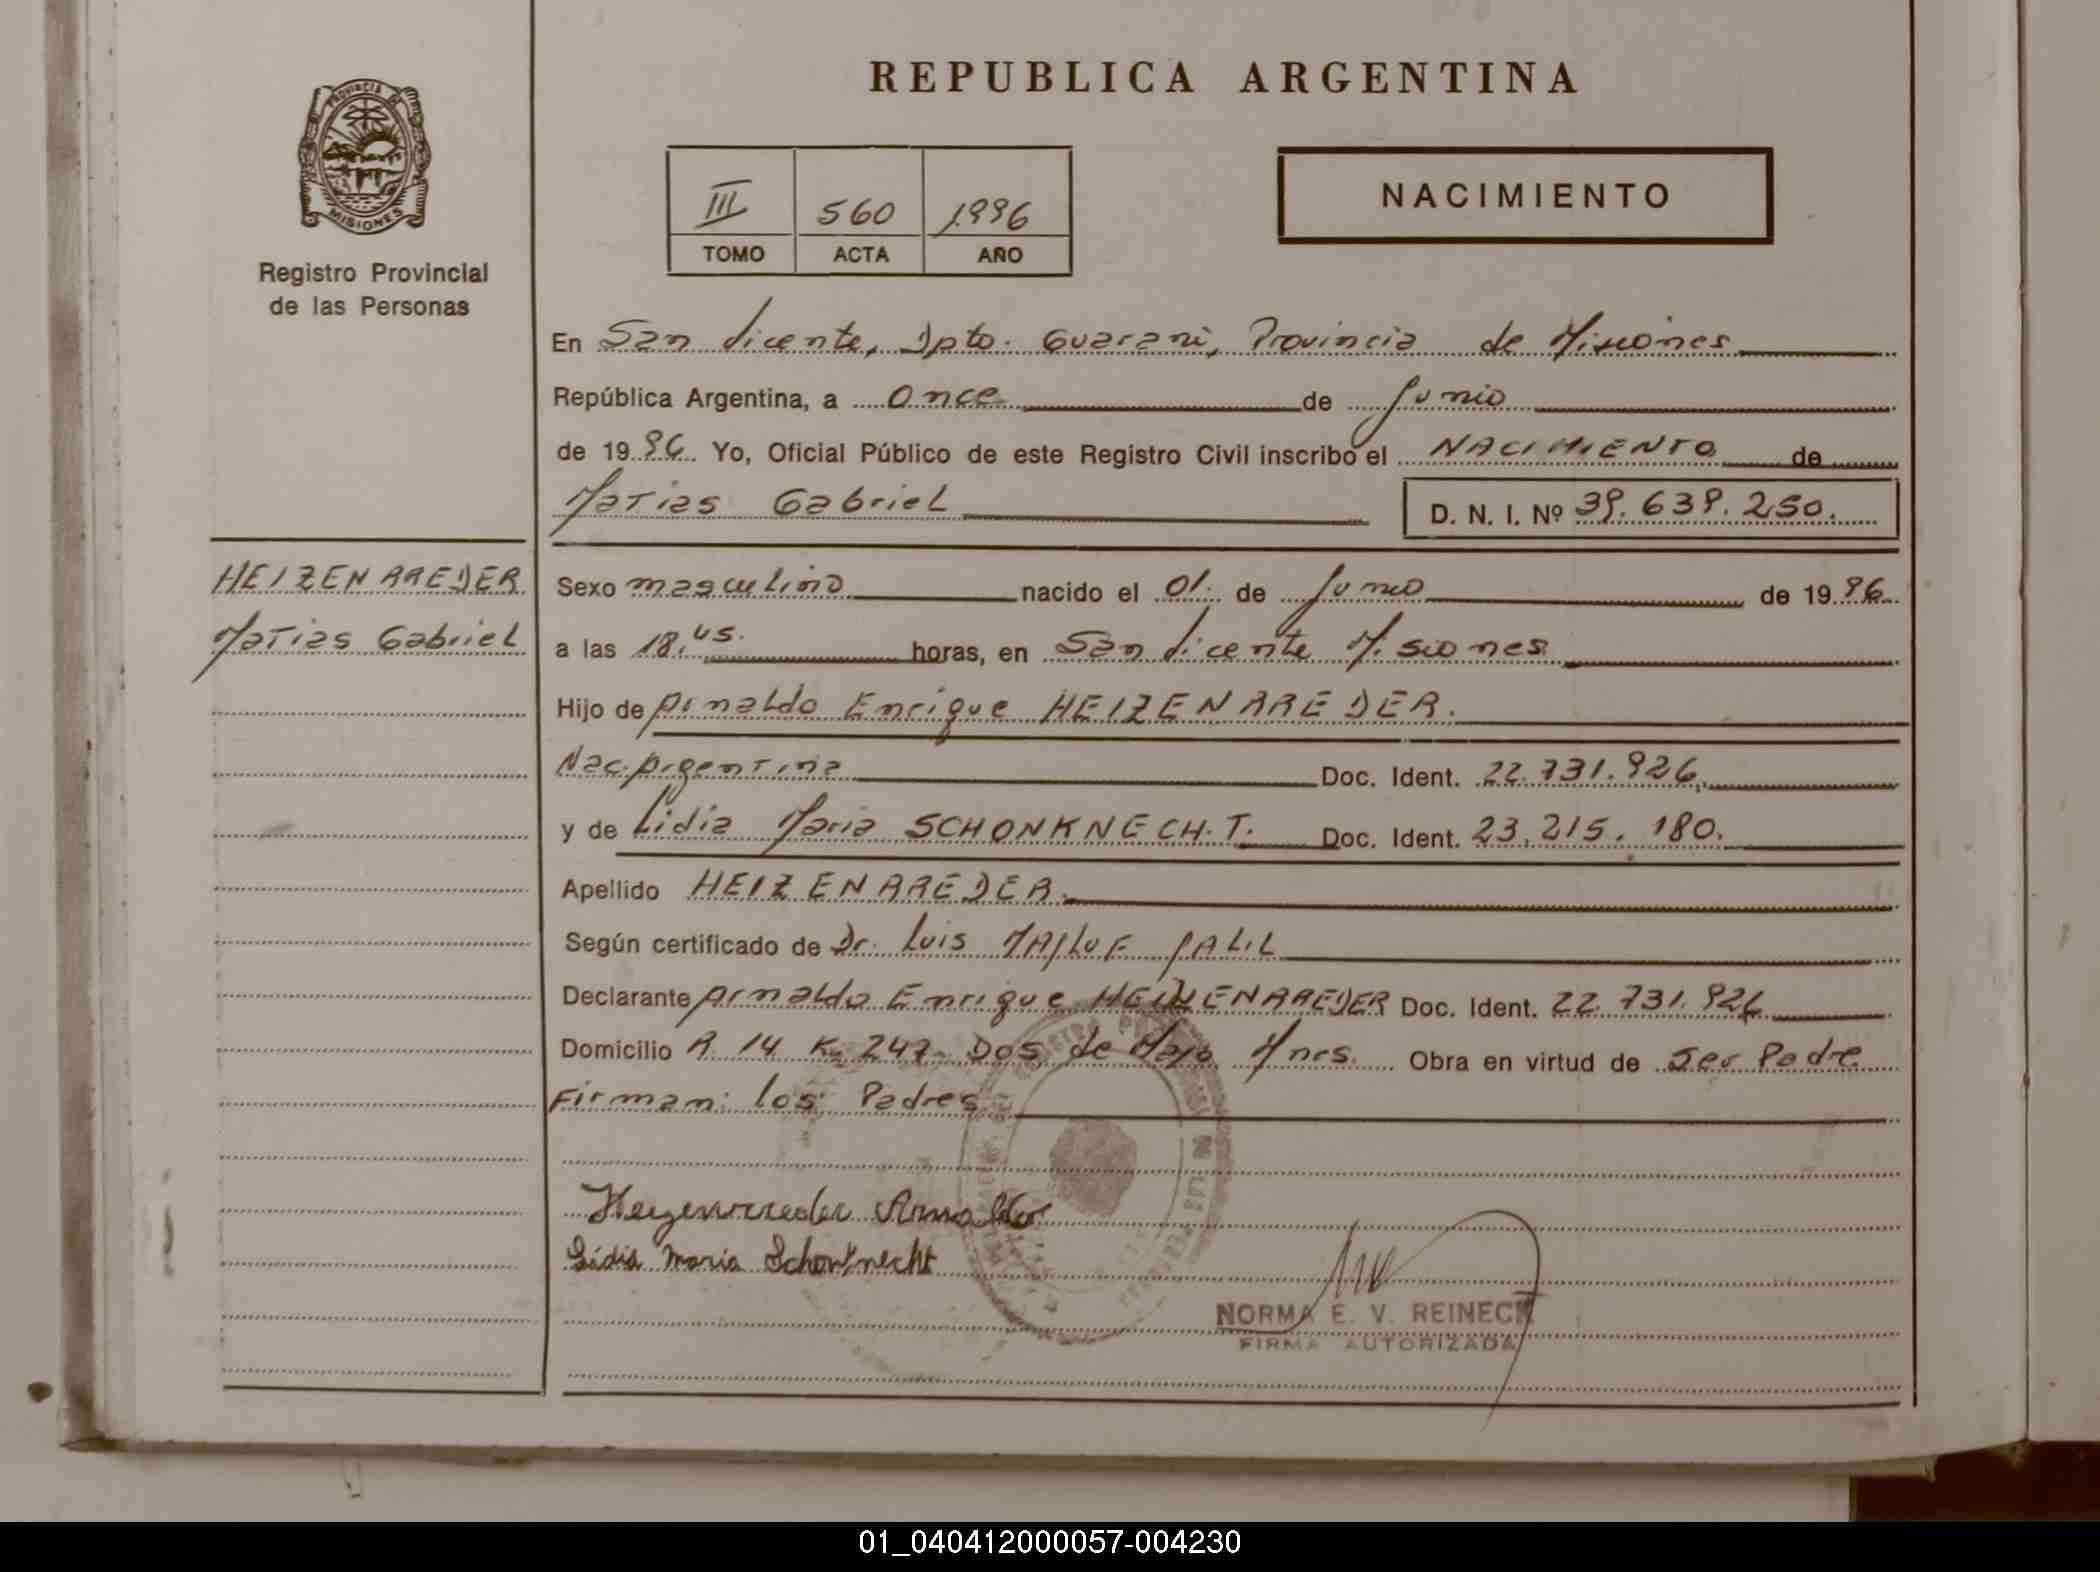 REPUBLICA ARGENTINA
PROVINCIA DE
MISIONES
Registro Provincial
de las Personas
III 560 1996
TOMO ACTA AÑO
NACIMIENTO
En San Vicente, Dpto. Guarani, Provincia de Misiones
República Argentina, a Once de Junio
de 1996 Yo, Oficial Público de este Registro Civil inscribo el NACIMIENTO de
Matias Gabriel D. N. I. Nº 39.639.250.
HEIZENRREDER
Matias Gabriel
Sexo masculino nacido el 01. de Junio de 1996
a las 18.45. horas, en San Vicente Misiones
Hijo de Arnaldo Enrique HEIZENRREDER.
Nac. Argentina Doc. Ident. 22.731.926,
y de Lidia Maria SCHONKNECH.T. Doc. Ident. 23.215.180.
Apellido HEIZENRREDER.
Según certificado de Dr. Luis MAJLUF JALIL
Declarante Arnaldo Enrique HEIZENRREDER Doc. Ident. 22.731.926
Domicilio R 14 Km 247 Dos de Mayo Mnes. Obra en virtud de Ser Padre
Firman: los Padres
Heizenrreder Arnaldo
Lidia Maria Schonknecht
NORMA E. V. REINECK
FIRMA AUTORIZADA
01_040412000057-004230